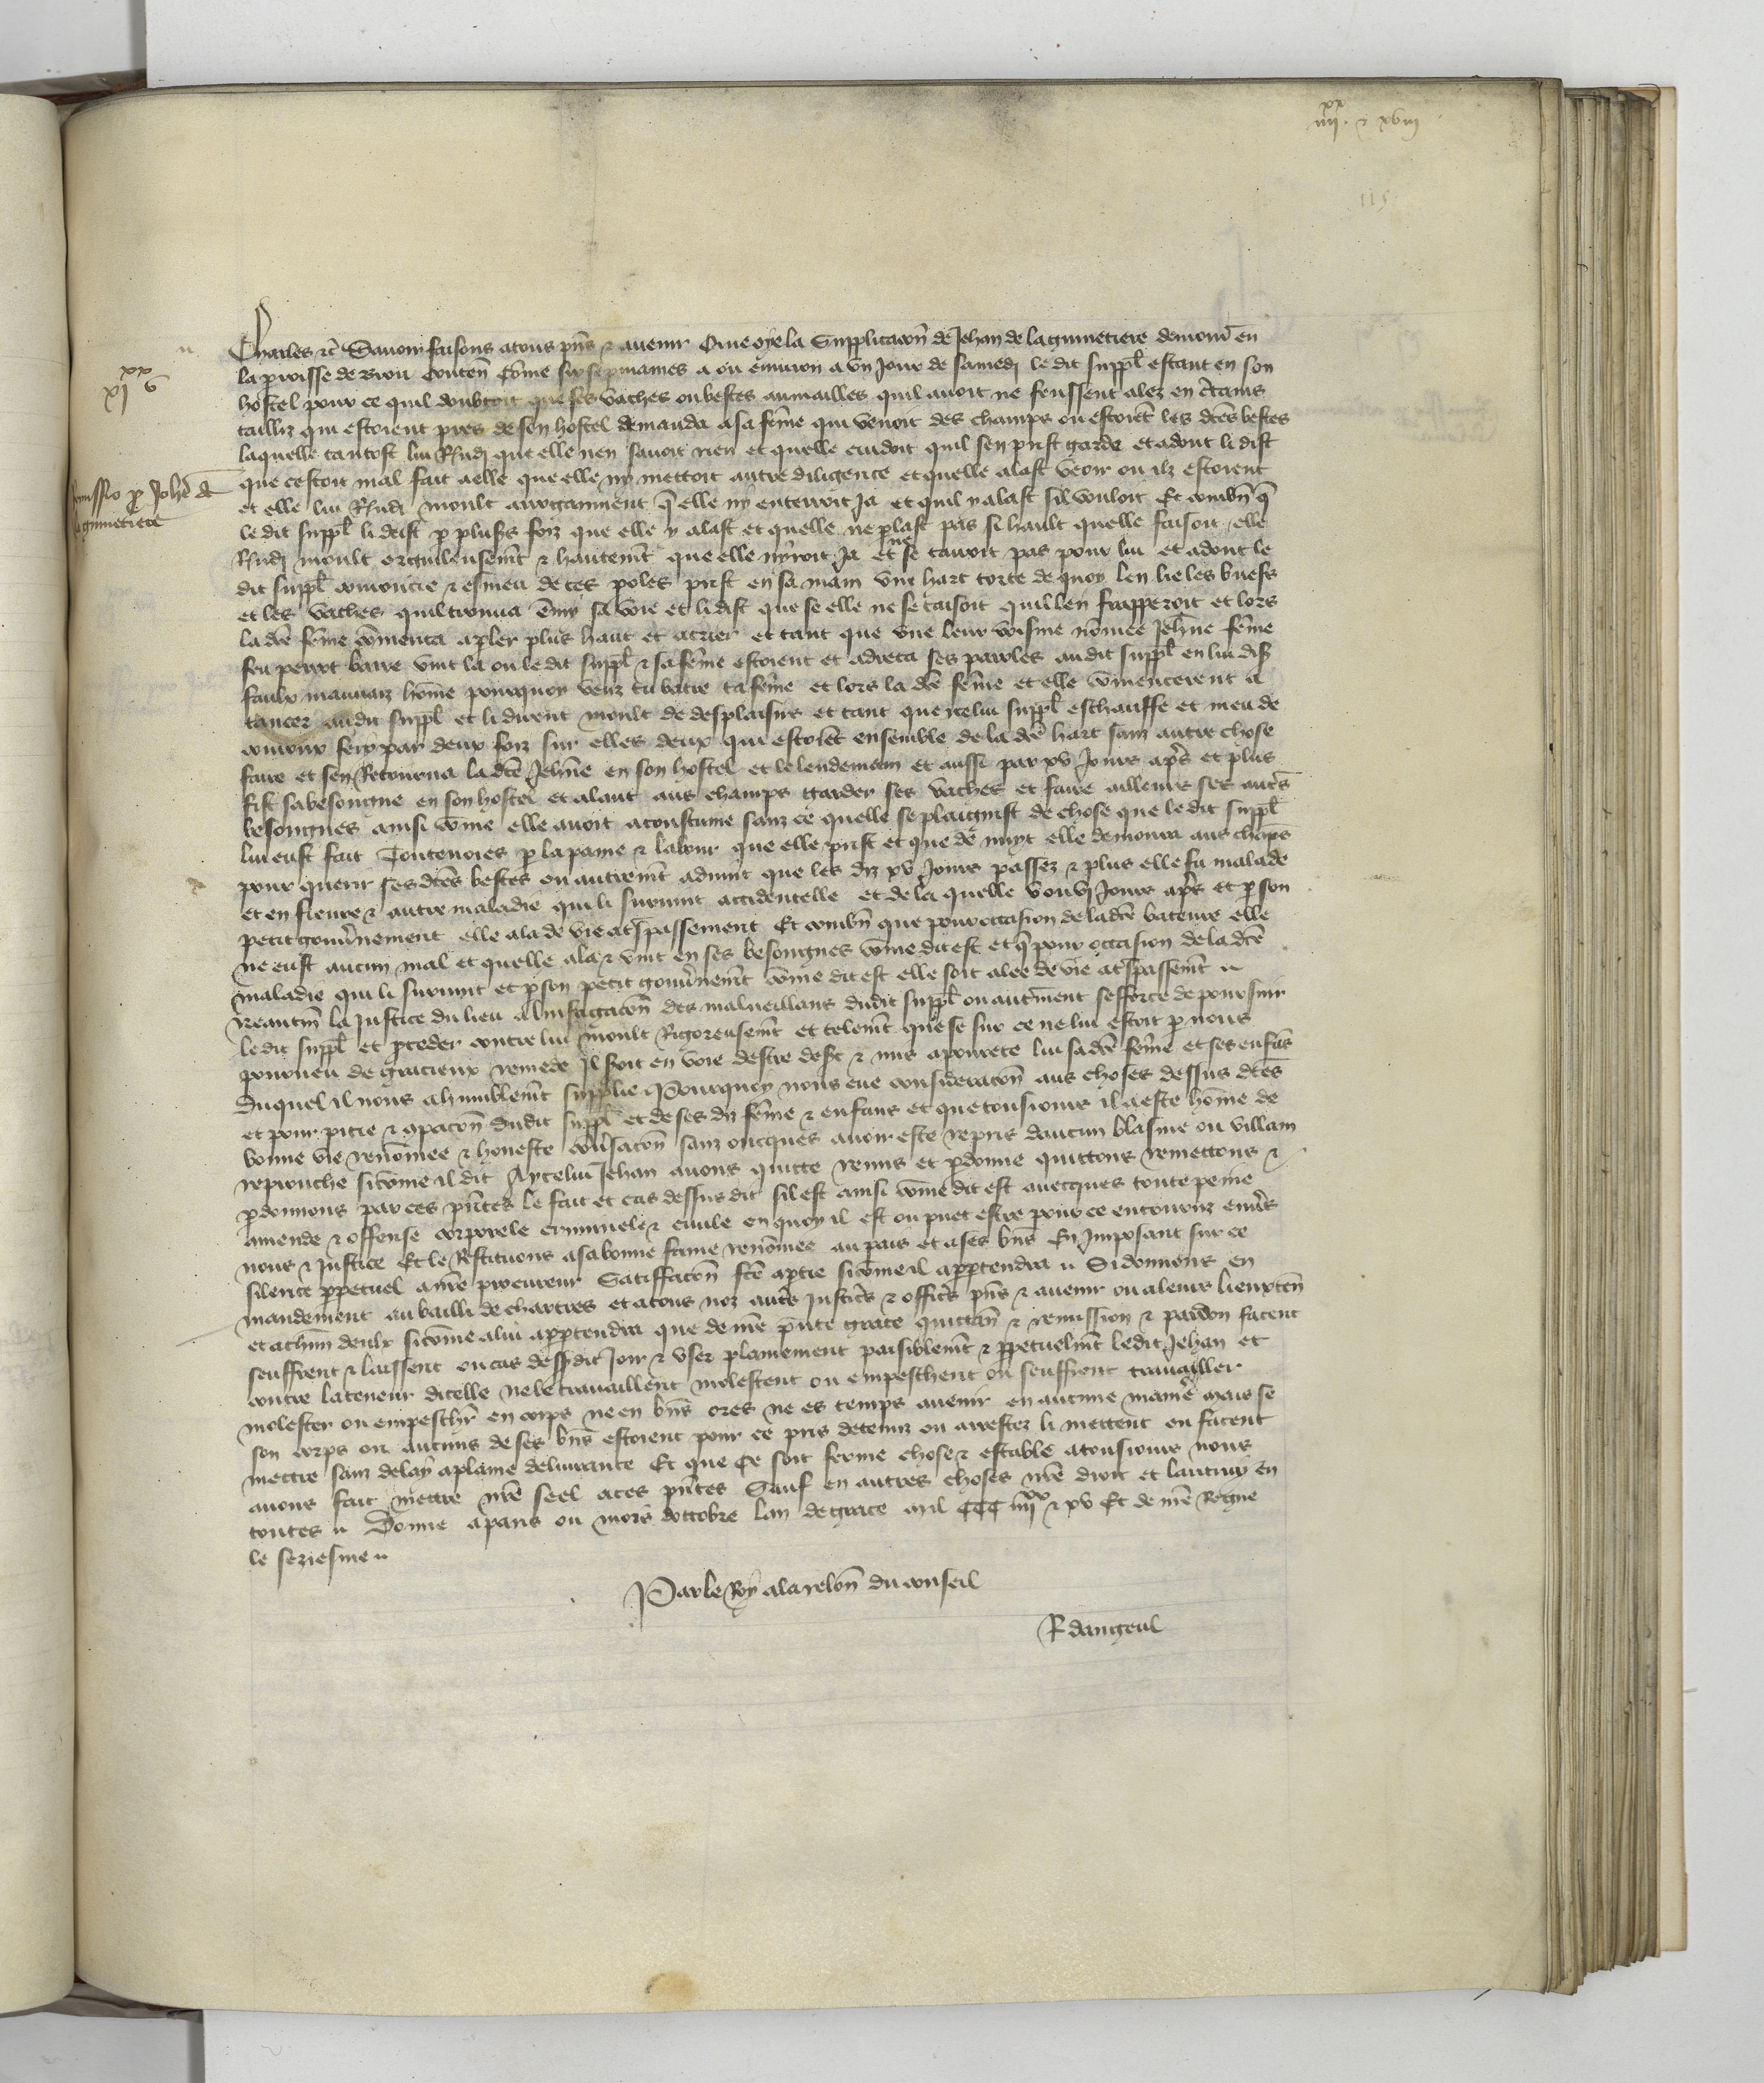 iiii xx xviii
115
xi xx v
Remissio p Johe de
laguinetiere
Charles etc Savoir faisons a tous pns et avenir Oye la Supplicacion de Jehan de laguinetiere demour en
la parroisse de Brou Conten Come six sepmaines a ou environ a un Jour de samedi le dit suppl estant en son
hostel pour ce quil doubtoit que ses vaches ou bestes aumailles quil avoit ne feussent alez en ctains
tailliz qui estoient pres de son hostel demanda a sa feme qui venoit des champs ou estoiet lez dces bestes
laquelle tantost lui Rndi que elle nen savoit rien et quelle cuidoit quil sen prist garde et adont li dist
que cestoit mal fait a elle que elle ny mettoit autre diligence et quelle alast veoir ou ilz estoient
et elle lui Rndi moult arrogamment q elle ny enterroit Ja et quil y alast sil vouloit Et combn q
le dit suppl li deist p plusrs foiz que elle y alast et quelle ne plast pas si hault quelle faisoit elle
Rndi moult orguilleusemt et hautemt que elle nyroit Ja et ne se tairoit pas pour lui et adont le
dit suppl couroucie et esmeu de ces poles prist en sa main une hart torte de quoy len lie les buefs
et les vaches quil trouva emy sa voie et li dist que se elle ne se taisoit quil len frapperoit et lors
la dce feme comenca a pler plus haut et a crier et tant que une leur voisine nomee Jehne feme
feu perrot barre vint la ou le dit suppl et sa feme estoient et adreca ses paroles au dit suppl en lui dis
faulx mauvaiz home pourquoy veuz tu batre ta feme et lors la dce feme et elle comencerent a
tancer au dit suppl et li dirent moult de desplaisirs et tant que icelui suppl eschauffe et meu de
courroux feri par deux foiz sur elles deux qui estoiet ensemble de la dce hart sanz autre chose
faire et sen Retourna la dce Jehne en son hostel et le lendemain et aussi par xv Jours aps et plus
fist sa besongne en son hostel et alant aus champs garder ses vaches et faire ailleurs ses autrs
besongnes ainsi come elle avoit acoustume sanz ce quelle se plaignist de chose que le dit suppl
lui eust fait Toutevoies p la paine et labour que elle prist et que de nuyt elle demoura aus chaps
pour querir ses dces bestes ou autremt advint que les diz xv Jours passez et plus elle fu malade
et en fievre et autre maladie qui li survint accidentelle et de la quelle v ou vi Jours aps et p son
petit gouvnement elle ala de vie a trspassement Et combn que pour occasion de la dce bateure elle
ne eust aucun mal et quelle ala et vint en ses besongnes come dit est et q pour occasion de la dce
maladie qui li survint et p son petit gouvnemt come dit est elle soit alee de vie a trspassemt
neantm la Justice du lieu a linstigacon des malveillans du dit suppl ou autrement sefforce de poursuir
le dit suppl et pceder contre lui moult Rigoreusemt et telemt que se sur ce ne lui estoit p nous
pourveu de gracieux remede Il soit en voie destre desert et mis a povrete lui sa dce feme et ses enfas
du quel il nous a humblemt supplie Pourquoy nous eue consideracon aus choses dessus dces
et pour pitie et apacon du dit suppl et de ses diz feme et enfans et que tousiours il a este home de
bonne vie renomee et honeste convsacon sanz oncques avoir este repris daucun blasme ou villain
reprouche sicome il dit A ycelui Jehan avons quicte remis et pdonne quittons remettons et
pdonnons par ces pntes le fait et cas dessus dit sil est ainsi come dit est avecques toute peine
amende et offense corporele criminele et civile en quoy il est ou puet estre pour ce encouruz envrs
nous et Justice Et le Restituons a sa bonne fame renomee au pais et a ses bns En Imposant sur ce
silence ppetuel a nre procureur Satiffacon fce a ptie sicome il appartendra Si donnons en
mandement au bailli de chartres et a tous noz autrs Justicrs et officrs pns et avenir ou a leurs lieuxten
et a chun deulx sicome a lui appartendra que de nre pnte grace quictan et remission et pardon facent
seuffrent et laissent ou cas dessus dit Joir et user plainement paisiblemt et ppetuelmt le dit Jehan et
contre la teneur dicelle ne le travaillent molestent ou empeschent ou seuffrent travailler
molester ou empeschr en corps ne en bns ores ne es temps avenir en aucune maniere mais se
son corps ou aucuns de ses bns estoient pour ce pris detenuz ou arrestez li mettent ou facent
mettre sanz delay a plaine delivrance Et que ce soit ferme chose et estable a tousiours nous
avons fait mettre nre seel a ces pntes Sauf en autres choses nre droit et lautruy en
toutes Donne a paris ou mois doctobre lan de grace mil CCC iiii xx et xv Et de nre Regne
le seziesme
Par le Roy a la relon du conseil
R dangeul